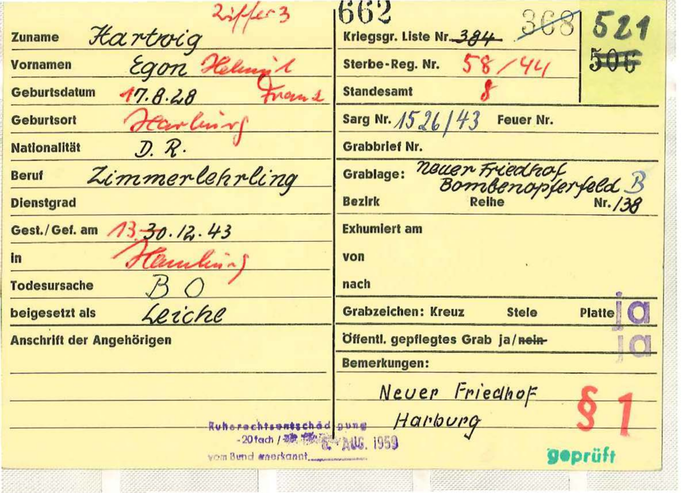 Ziffer 3
662
368
521
506
Zuname Hartwig
Kriegsgr. Liste Nr. 384
Vornamen Egon Helmut
Franz
Sterbe-Reg. Nr. 58/44
Geburtsdatum 17.8.28
Standesamt 8
Geburtsort Harburg
Sarg Nr. 1526/43 Feuer Nr.
Nationalität D. R.
Grabbrief Nr.
Beruf Zimmerlehrling
Grablage: Neuer Friedhof
Bombenopferfeld B
Dienstgrad
Bezirk Reihe Nr. 138
Gest./Gef. am 13. 30.12.43
Exhumiert am
in Hamburg
von
Todesursache B O
nach
beigesetzt als Leiche
Grabzeichen: Kreuz Stele Platte ja
Anschrift der Angehörigen
Öffentl. gepflegtes Grab ja/nein ja
Bemerkungen:
Neuer Friedhof
Harburg
§ 1
geprüft
Ruherechtsentschädigung
-20fach / 6. AUG. 1959
vom Bund anerkannt